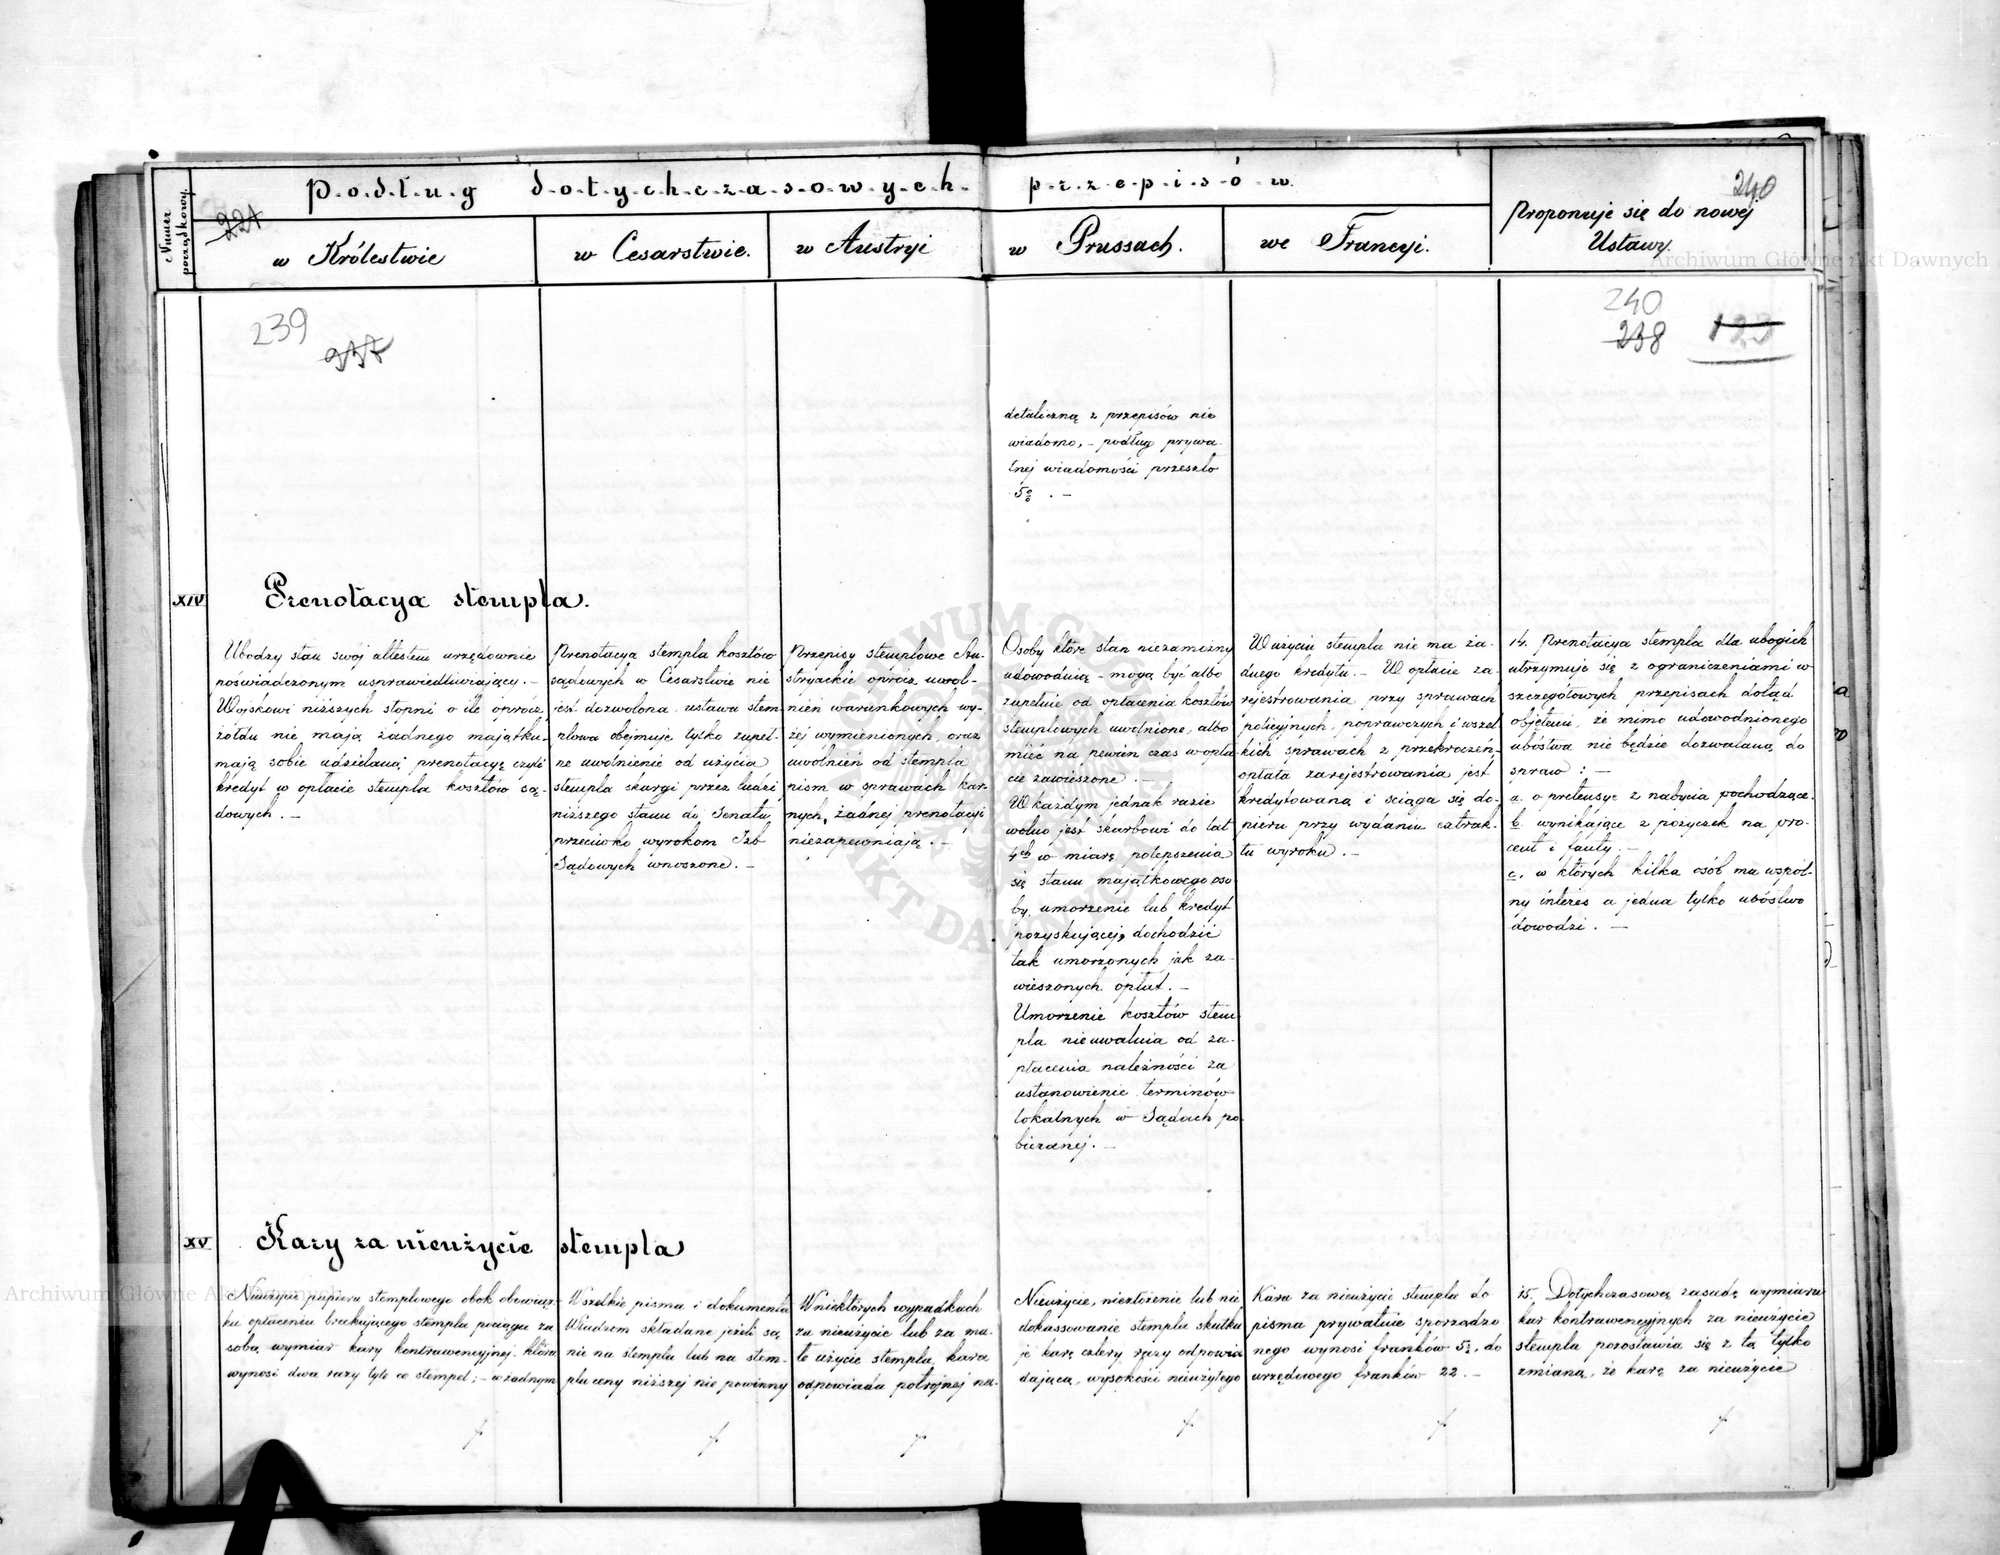 Numer porządkowy.
Podług dotychczasowych przepisów.
240
Proponuje się do nowej
Ustawy.
221
w Królestwie
w Cesarstwie.
w Austryi
w Prussach.
we Francyi.
Archiwum Główne Akt Dawnych
239
237
240
238
123
detaliczną z przepisów nie
wiadomo, - podług prywa-
tnej wiadomości przeszło
5% . -
XIV
Prenotacya stempla.
Ubodzy stan swój attestem urzędownie
poświadczonym usprawiedliwiający. -
Wojskowi niższych stopni o ile oprócz
żołdu nie mają żadnego majątku
mają sobie udzielaną prenotacyę czyli
kredyt w opłacie stempla kosztów są-
dowych. -
Prenotacya stempla kosztów
sądowych w Cesarstwie nie
jest dozwolona, ustawa stem-
plowa obejmuje tylko zupeł-
ne uwolnienie od użycia
stempla skargi przez ludzi
niższego stanu do Senatu
przeciwko wyrokom Izb
Sądowych wnoszone. -
Przepisy stemplowe Au-
stryackie oprócz uwol-
nień warunkowych wy-
żej wymienionych, oraz
uwolnień od stempla
pism w sprawach kar-
nych, żadnej prenotacyi
niezapewniają. -
Osoby które stan niezamożny
udowodnią - mogą być albo
zupełnie od opłacenia kosztów
stemplowych uwolnione, albo
mieć na pewien czas w opła-
cie zawieszone. -
W każdym jednak razie
wolno jest skarbowi do lat
4ch w miarę polepszenia
się stanu majątkowego oso-
by, umorzenie lub kredyt
pozyskującej, dochodzić
tak umorzonych jak za-
wieszonych opłat. -
Umorzenie kosztów stem-
pla nieuwalnia od za-
płacenia należności za
ustanowienie terminów
lokalnych w Sądach po-
bieranej. -
W użyciu stempla nie ma ża-
dnego kredytu. - W opłacie za-
rejestrowania przy sprawach
policyjnych, poprawczych i wszel-
kich sprawach z przekroczeń
opłata zarejestrowania jest
kredytowaną i ściąga się do-
piero przy wydaniu extrak-
tu wyroku. -
14. Prenotacya stempla dla ubogich
utrzymuje się z ograniczeniami w
szczegółowych przepisach dotąd
objętemi, że mimo udowodnionego
ubóstwa nie będzie dozwalaną do
spraw : -
a. o pretensye z nabycia pochodzące.
b. wynikające z pożyczek na pro-
cent i fanty. -
c. w których kilka osób ma wspól-
ny interes a jedna tylko ubóstwo
dowodzi. -
XV
Kary za nieużycie stempla
Nieużycie papieru stemplowego obok obowiąz-
ku opłacenia brakującego stempla pociąga za
sobą wymiar kary kontrawencyjnej która
wynosi dwa razy tyle co stempel; - w żadnym
Wszelkie pisma i dokumenta
Władzom składane jeżeli są
nie na stemplu lub na stem-
plu ceny niższej nie powinny
W niektórych wypadkach
za nieużycie lub za ma-
łe użycie stempla, kara
odpowiada potrójnej na-
Nieużycie, niezłożenie lub nie
dokassowanie stempla skutku-
je karę cztery razy odpowia-
dającą, wysokości nieużytego
Kara za nieużycie stempla do
pisma prywatnie sporządzo-
nego wynosi franków 5½, do
urzędowego franków 22. -
15. Dotychczasową zasadę wymiaru
kar kontrawencyjnych za nieużycie
stempla pozostawia się z tą tylko
zmianą, że karę za nieużycie
Archiwum Główne Akt Dawnych